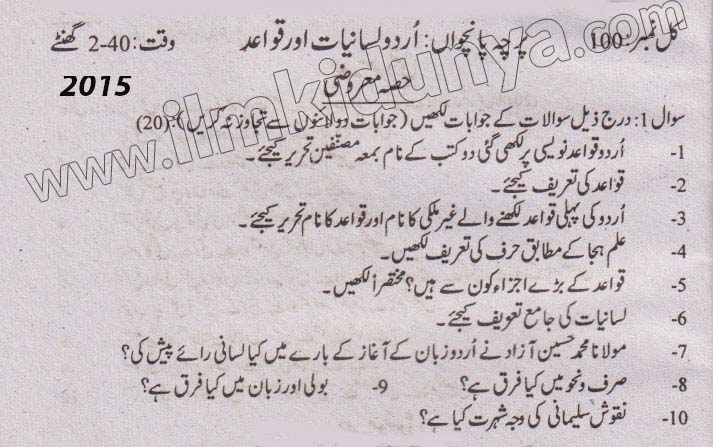 کل نمبر: 100 پرچہ پانچواں: اُردو لسانیات اور قواعد وقت: 40-2 گھنٹے
حصہ معروضی
2015
www.ilmkidunya.com
سوال 1: درج ذیل سوالات کے جوابات لکھیں (جوابات دو لائنوں سے تجاوز نہ کریں): (20)
-1 اُردو قواعد نویسی پر لکھی گئی دو کتب کے نام بمعہ مصنّفین تحریر کیجئے۔
-2 قواعد کی تعریف کیجئے۔
-3 اُردو کی پہلی قواعد لکھنے والے غیر ملکی کا نام اور قواعد کا نام تحریر کیجئے۔
-4 علم ہجا کے مطابق حرف کی تعریف لکھیں۔
-5 قواعد کے بڑے اجزاء کون سے ہیں؟ مختصراً لکھیں۔
-6 لسانیات کی جامع تعویف کیجئے۔
-7 مولانا محمد حسین آزاد نے اُردو زبان کے آغاز کے بارے میں کیا لسانی رائے پیش کی؟
-8 صرف ونحو میں کیا فرق ہے؟ -9 بولی اور زبان میں کیا فرق ہے؟
-10 نقوش سلیمانی کی وجہ شہرت کیا ہے؟